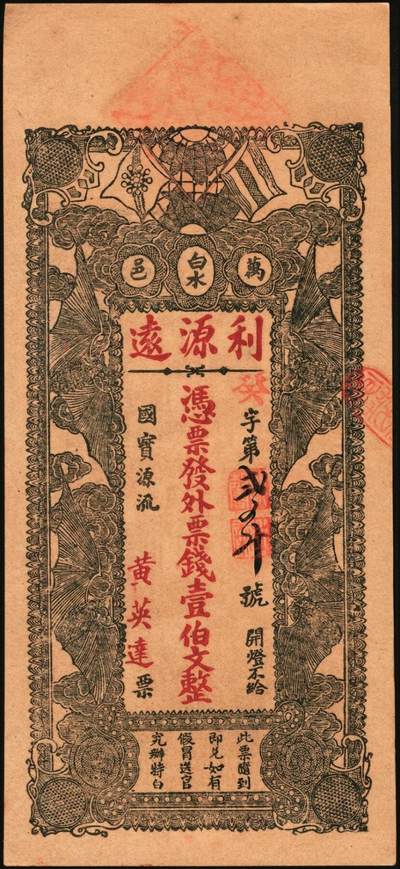 萬白水邑
利源遠
癸字第
號 開燈不給
憑票發外票錢壹伯文整
國寶源流
黃英達票
此票隨到
即兌如有
假冒送官
究辦特白